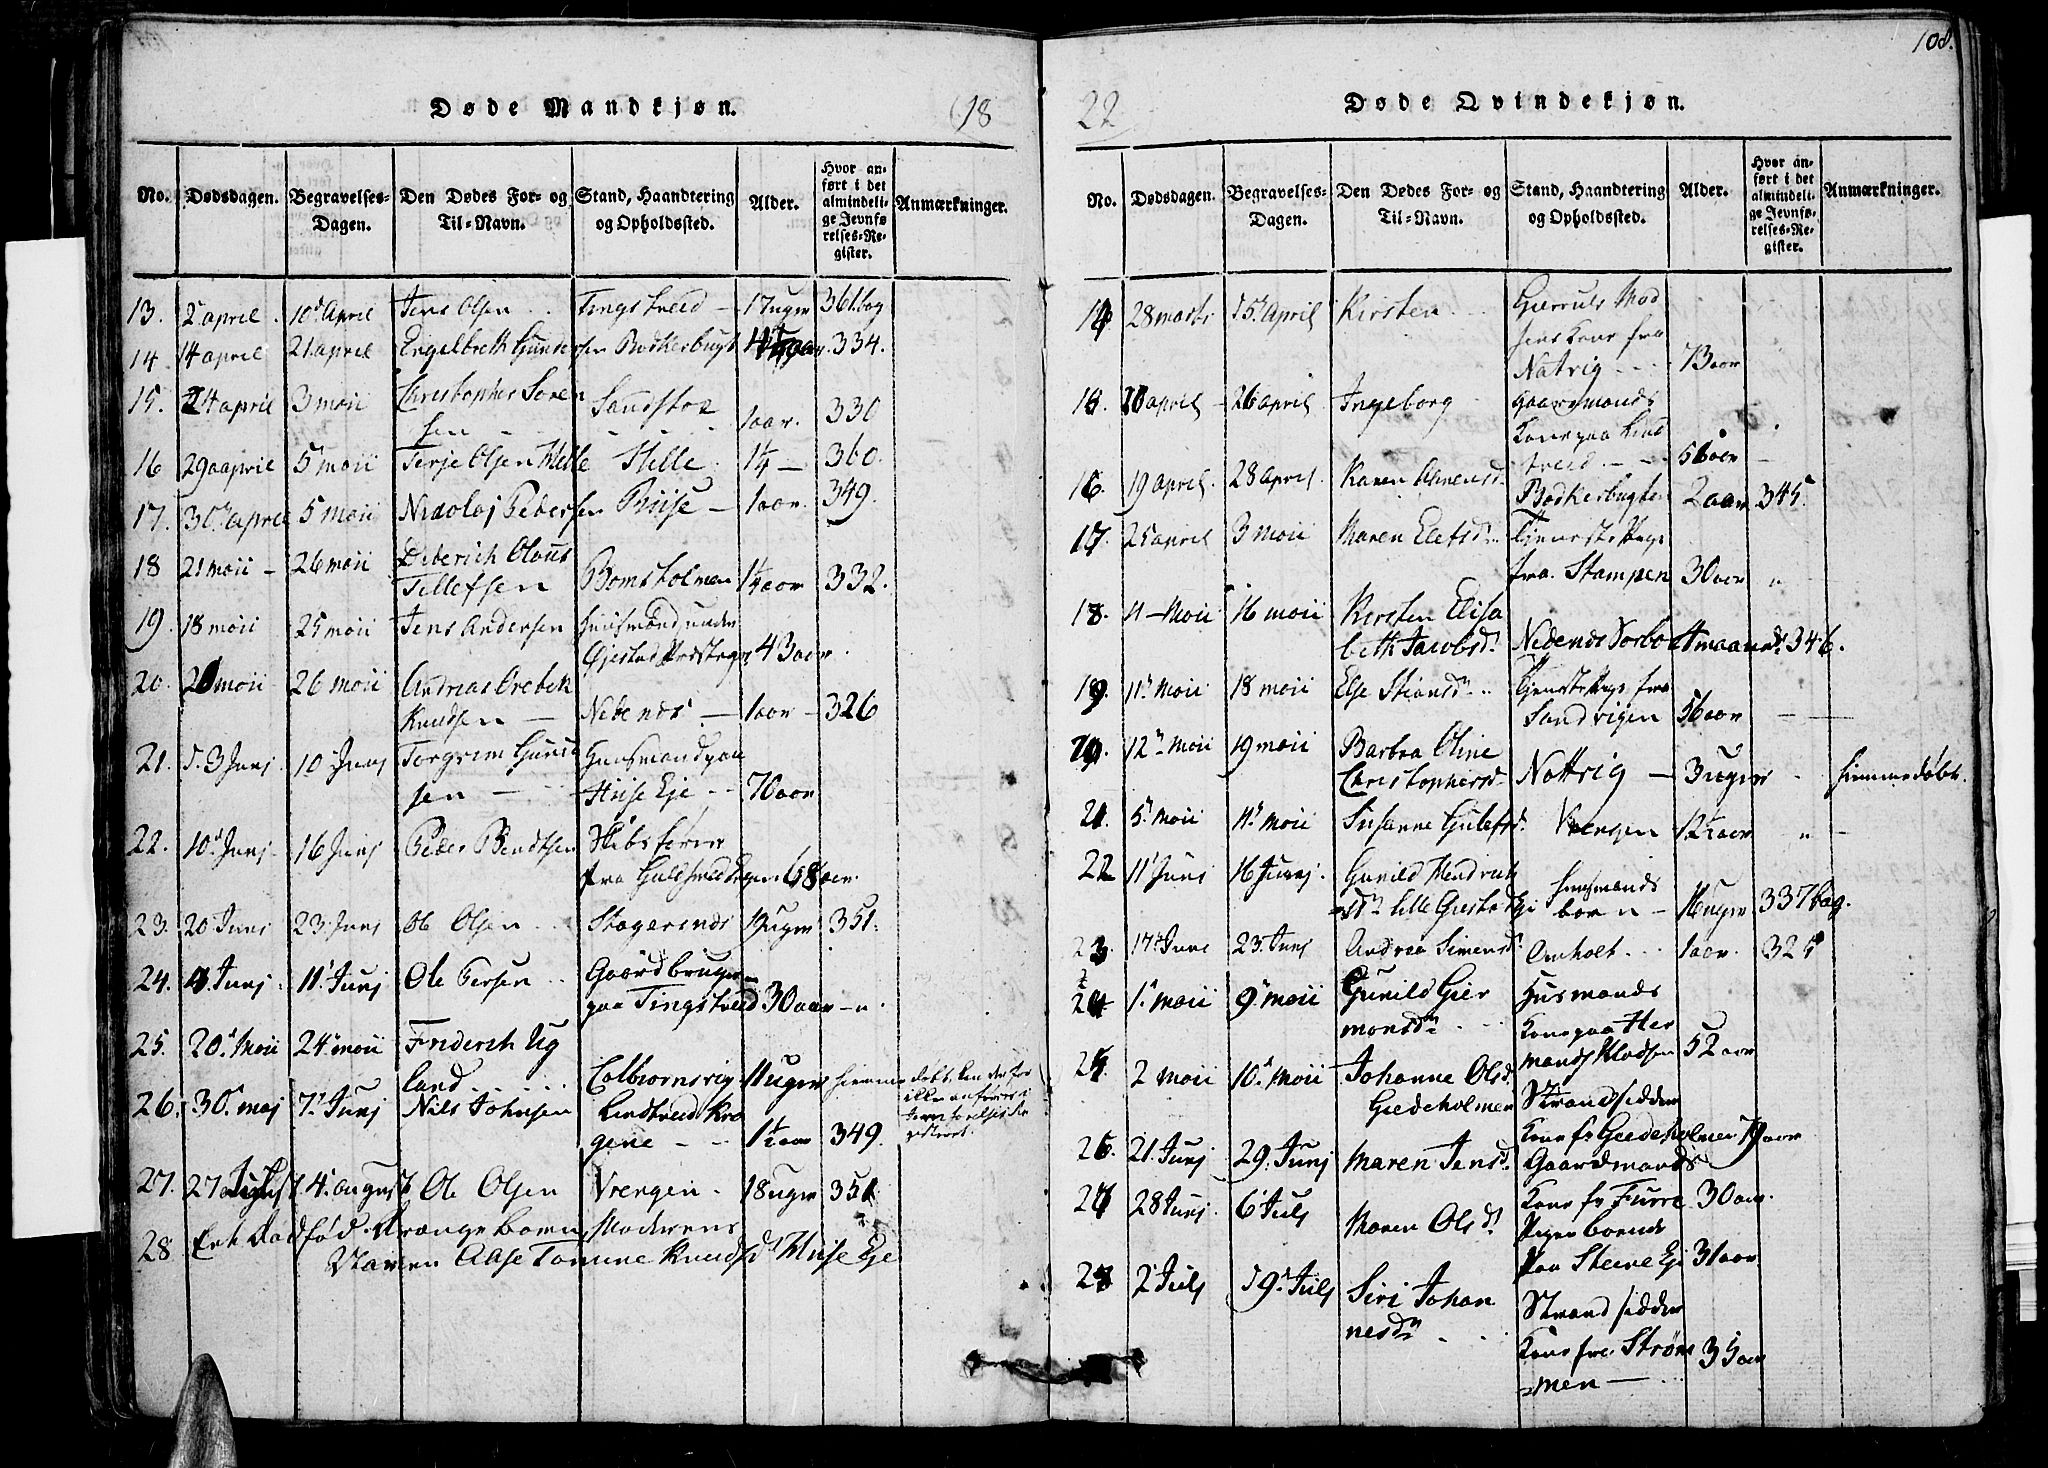 108.
Døde Mandkjøn. 18
No. Dødsdagen. Begravelses-Dagen. Den Dødes For- og Til-Navn. Stand, Haandtering og Opholdssted. Alder. Hvor anført i det almindelige Jevnførelses-Register. Anmærkninger.
13. 2 april. 10 April Jens Olsen Tingstveed 17 uger 361. bag
14 14 april 21. april Engelbreth Gundersen Bodkerbugt 334.
15. 24 april 3 moii Christopher Soren
sen Sandstoe 1 aar. 330
16 29 april 5 moii Terje Olsen Hille Hille 1¼ 360.
17. 30 april 5 moii Nicolaj Pedersen Biise 1 aar. 349.
18 21 moii 26 moii Diderich Olaus
Tellefsen Bomsholmen 1¼ aar 332.
19. 18 moii 25 moii Jens Andersen Huusmand under
Øjestad Præsteg. 43 aar.
20. 20 moii 26 moii Andreas Orebek
Knudsen Nedenes 1 aar 326
21. 3 Junj 10 Junj Torgrim Gunul
sen Huusmand paa
Hiise Eje 70 aar
22. 10 Junj 16 Junj Peder Bendtsen Skibsfører
fra Gulsmedengen 68 aar.
23. 20 Junj 23. Junj Ole Olsen Stagerends 19 uger 351.
24. Junj 11 Junj Ole Persen Gaardbruger
paa Tingstveed 30 aar
25. 20. Moii 24 moii Friderich Ug
land Colbiornsvig 11 uger hiemmedøbt, kan derfor
ikke anføres i
26. 30. maj 7 Junj Nils Johnsen Lindtveed Kro
gene 1½ aar 349.
27. 27 4. august Ole Olsen Vrengen 18 uger 351
28. Eet Dødfød Drænge barn, Moderens
Navn Aase Tomine Knudsd. Hiise Eje
22 Døde Qvindekjøn.
No. Dødsdagen. Begravelses-Dagen. Den Dødes For- og Til-Navn. Stand, Haandtering og Opholdssted. Alder. Hvor anført i det almindelige Jevnførelses-Register. Anmærkninger.
14 28 marts 15 April Kirsten Gierruls Mad
sens Kone fra
Natvig 73 aar
15. 20 april 26 april Ingeborg Gaardmands
Kone paa Lind
tveed 56 aar
16. 19 april. 28 april. Karen Ahnensd. Bodkerbugten 2 aar 345.
17. 25 april 3 moii Maren Elefsd. Tjeneste Pige
fra Stampen 30 aar
18. 11 Moii 16 moii Kirsten Elisa
beth Jacobsd. Nedenes Torbo 4 maaneder 346.
19. 11 Moii 18 moii Else Stiansd. Tjeneste Pige fra
Sandvigen 56 aar
20. 12 Moii 19 moii Barbra Oline
Christophersd. Nattvig 3 uger hiemmedøbt.
21. 5 Moii 11 moii Susanne Gulefsd. Vrengen 12½ aar
22 11 Junj 16 Junj. Gunild Hendrich
sd. lille Giestad Eje Huusmands
barn 16 uger 337 bag.
23 17 Juni 23. Junj Andrea Simensd. Omholt 1 aar. 325
24 1 moii 9 moii Gunild Gier
monsd. Husmands
Kone paa Her
mands Kladsen 52 aar
25. 2 moii 10 Moii Johanne Olsd.
Giedeholmen Strandsidder
Kone fr Giedeholmen 79 aar
26. 21. Junj 29. Junj Maren Jensd. Gaardmands
Kone fr Furre 30 aar.
27 28 Junj. 6 Julj Maren Olsd. Pigen boende
Paa Steene Eje 31 aar
28 2 Julj 9 Julj Siri Johan
nesd. Strandsidder
Kone fra Strøm
men 35 aar